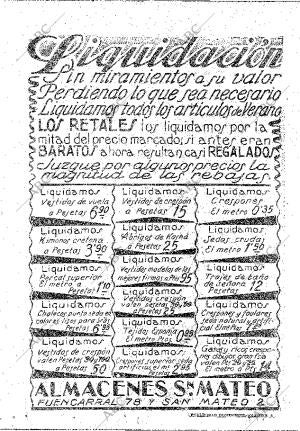 Liquidación
Sin miramientos a su valor
Perdiendo lo que sea necesario
Liquidamos todos los artículos de Verano
LOS RETALES los liquidamos por la
mitad del precio marcado; si antes eran
BARATOS ahora resultan casi REGALADOS
Juzgue por algunos precios la
magnitud de las rebajas
Liquidamos
Vestidos de vuela
a Pesetas 6'90
Liquidamos
Vestidos de crespón
a Pesetas 15
Liquidamos
Crespones
El metro a 0'35
Liquidamos
Kimonos cretona
a Pesetas 3'90
Liquidamos
Abrigos de
a Pesetas 25
Liquidamos
Sedas crudas
El metro a 1'50
Liquidamos
Percal superior
El metro a
Pesetas 1'10
Liquidamos
Vestidos modelos de las
mejores firmas a Ptas 95
Liquidamos
Trajes de baño
de señora
Pesetas 12
Liquidamos
Chalecos punto seda en
colores lisos para
a Pesetas
Liquidamos
Vestidos crespón
valen
a Pesetas
Liquidamos
Crespones y foulares
seda natural y
Liquidamos
Vestidos de crespón
valen
a Pesetas 50
Liquidamos
Crespones superior seda
artificial el m/ 2'95
Liquidamos
Gasas y ricos crespones
dibujos gran
valen
El metro a Pts 14
ALMACENES Sn MATEO
FUENCARRAL 78 Y SAN MATEO 2